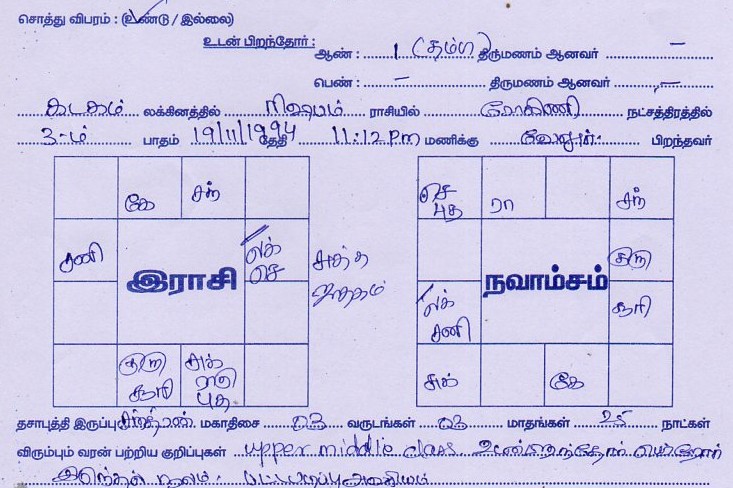 சொத்து விபரம் : (உண்டு / இல்லை)
உடன் பிறந்தோர் :
ஆண் : 1 (தம்பி) திருமணம் ஆனவர் –
பெண் : – திருமணம் ஆனவர் –
கடகம் லக்கினத்தில் ரிஷபம் ராசியில் ரோகிணி நட்சத்திரத்தில்
3-ம் பாதம் 19/11/1994 தேதி 11:12 Pm மணிக்கு வேலூர். பிறந்தவர்
கே சந் செ புத ரா சந்
சனி லக் செ சுத்த ஜாதகம் குரு
இராசி நவாம்சம்
லக் சனி சூரி
குரு சூரி சுக் ராகு புத சுக் கே
தசாபுத்தி இருப்பு சந்திரன் மகாதிசை 03 வருடங்கள் 03 மாதங்கள் 25 நாட்கள்
விரும்பும் வரன் பற்றிய குறிப்புகள் upper middle class
பட்டபடிப்பு அவசியம்